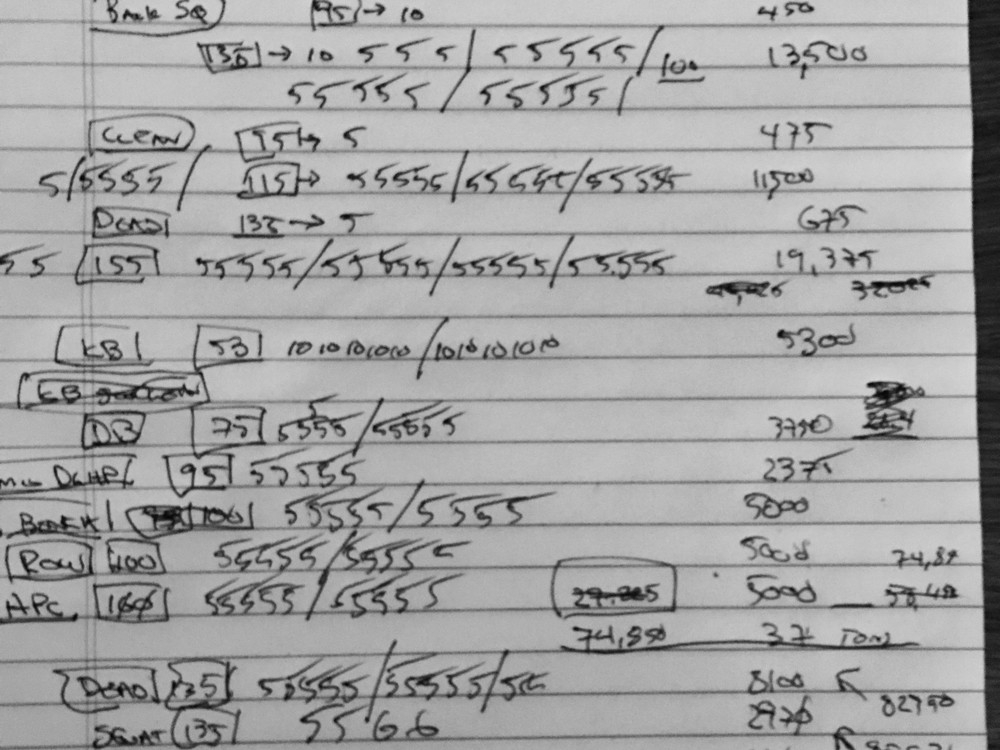 Back SQ 95 → 10 450
135 → 10 5 5 5 / 5 5 5 5 5 / 100 13,500
5 5 5 5 5 / 5 5 5 5 5 /
CLEAN 95 → 5 475
5/5555 / 115 → 55555/55555/55555 11,500
DEAD 135 → 5 675
55 155 55555/55555/55555/55555 19,375
KB 53 10 10 10 10 10 / 10 10 10 10 10 5300
KB
DB 75 5555 5/55555 3750
95 55555 2375
100 55555/5555 5000
ROW 100 55555/55555 5000 74,8
100 55555/55555 5000
74,850 37 TONS
DEAD 135 55555/55555/55 8100
SQUAT 135 5 5 6 6 2970 82950